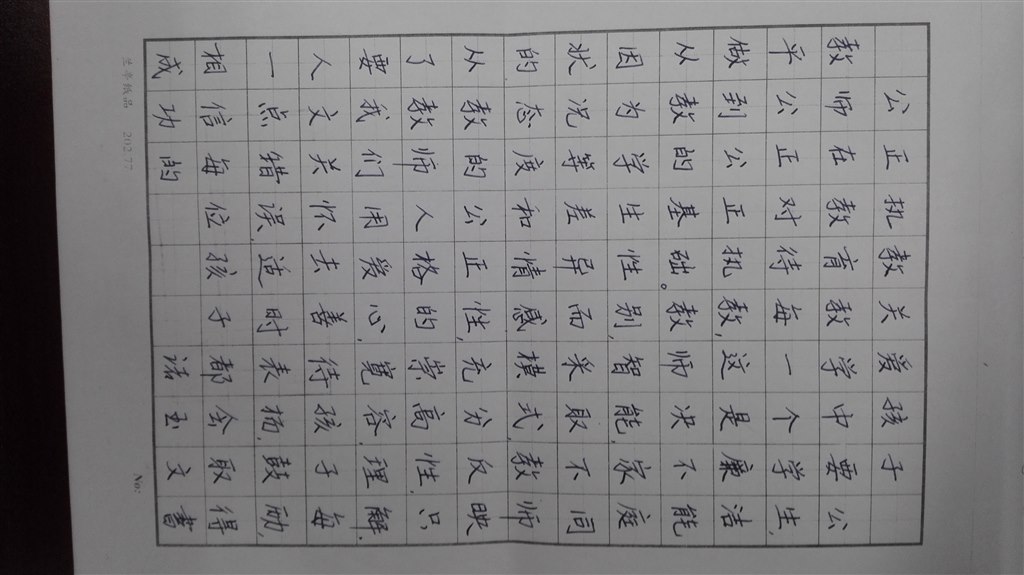 公正执教关爱孩子
教师在教育教学中要公
平公正对待每一个学生,
做到公正执教,这是廉洁
从教的基础。教师决不能
因为学生性别,智能,家庭
状况等差异而采取不同
的态度和情感模式,教师
从教的公正性,充分反映
了教师人格的崇高性,只
要我们用爱心,宽容,理解,
人文关怀去善待孩子每
一点错误,适时表扬,鼓励,
相信每位孩子都会取得
成功的 诺玉文書
纸品 202.77 No: